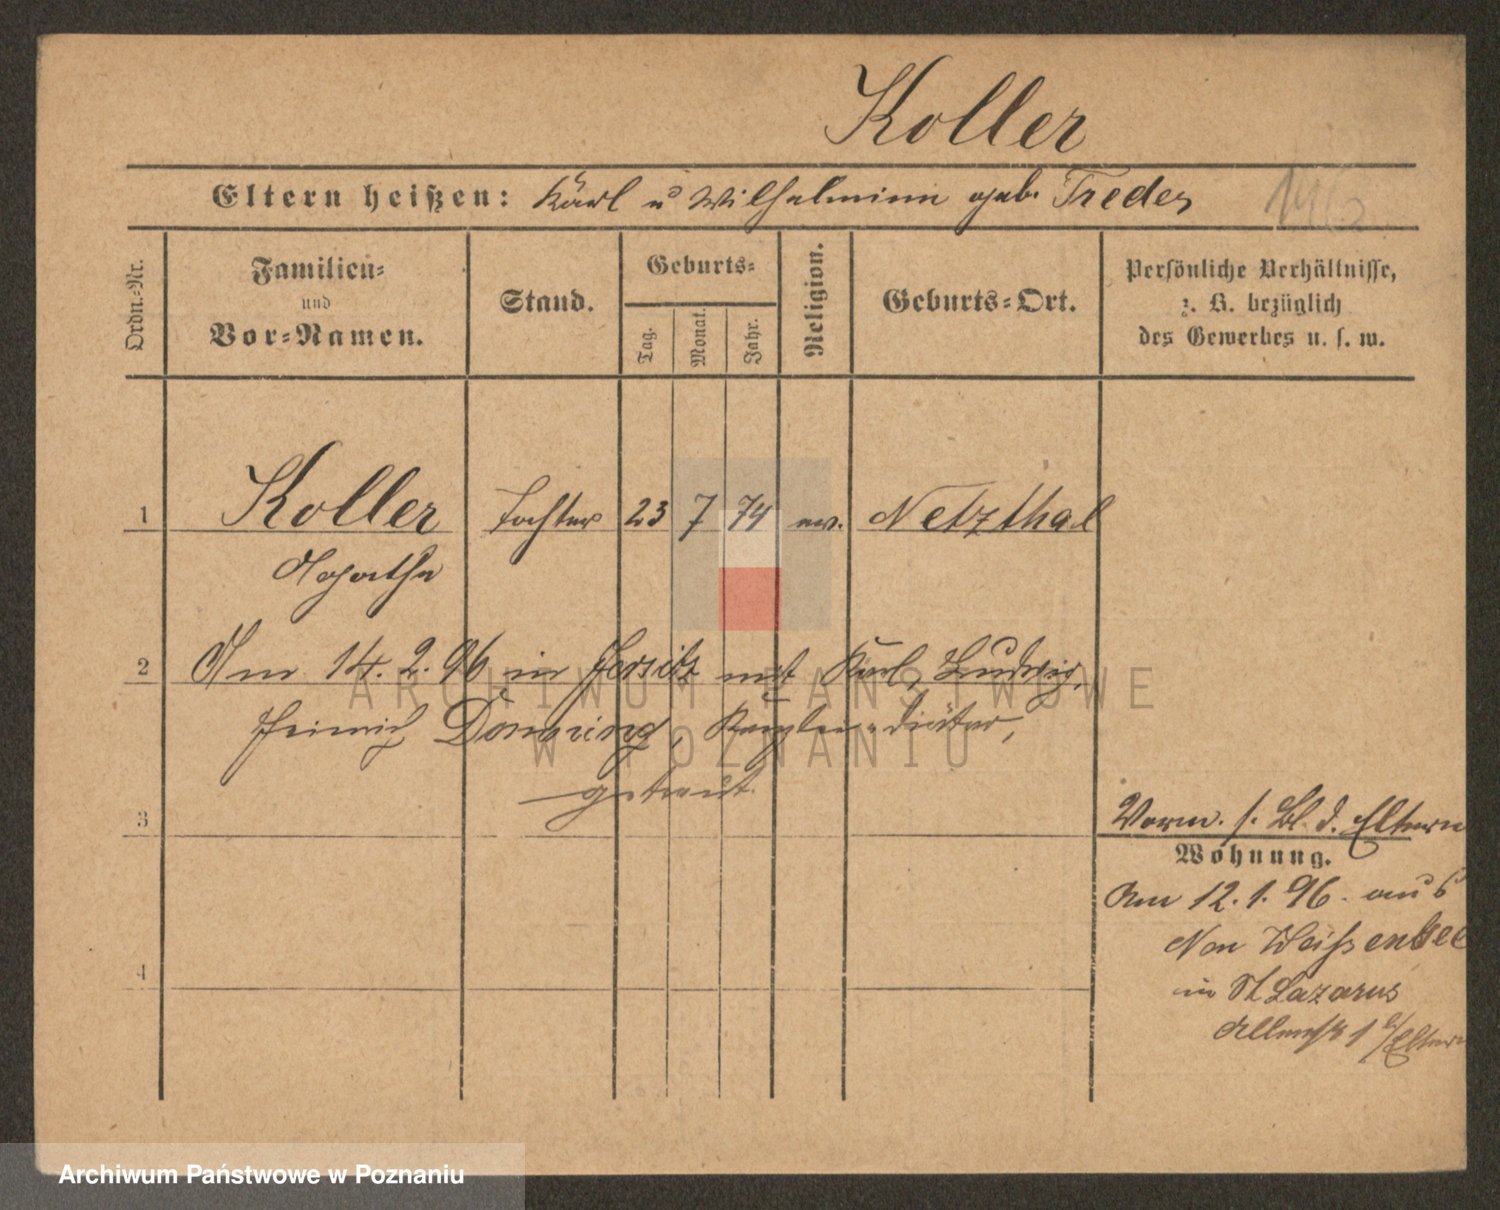 Koller
Eltern heißen: Karl u Wilhelmine geb. Treder
Ordn.-Nr.
Familien-
und
Vor-Namen.
Stand.
Geburts-
Tag.
Monat.
Jahr.
Religion.
Geburts-Ort.
Persönliche Verhältnisse,
z. B. bezüglich
des Gewerbes u. s. w.
1 Koller Tochter 23 7 74 ev. Netzthal
Agathe
2 Am 14. 2. 96 in Jersitz mit Karl, Ludwig,
Heinrich Domning, Kanzlei-diätar,
getraut.
3
Vorm. s. Bl. d. Eltern
Wohnung.
Am 12. 1. 96. aus
in St Lazarus
1 b/Eltern
4
ARCHIWUM PAŃSTWOWE
W POZNANIU
Archiwum Państwowe w Poznaniu